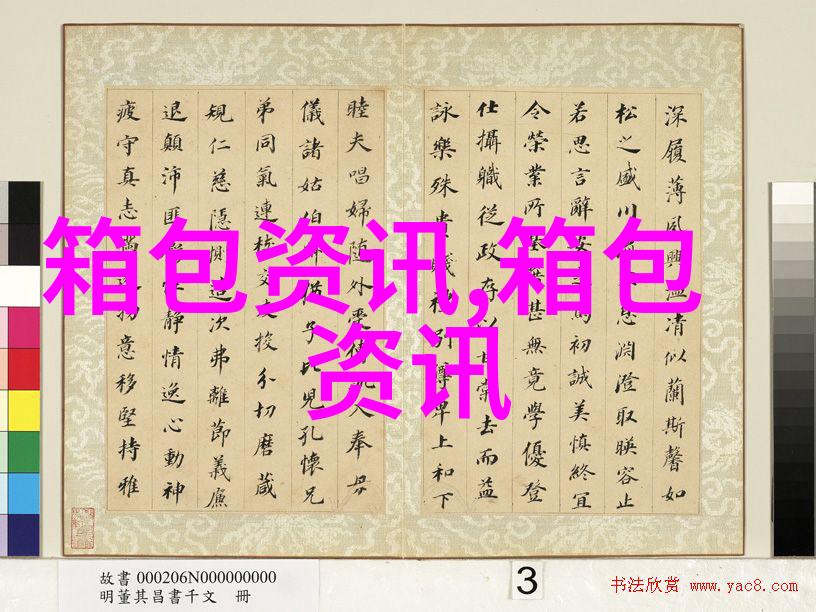 箱包资讯,箱包
资讯
深履薄夙興溫清似蘭斯馨如
松之盛川息淵澄取暎容止
若思言辭安初誠美慎終宜
令榮業所基甚無竟學優登
仕攝職從政存以甘棠去而益
詠樂殊貴賤禮別尊卑上和下
睦夫唱婦隨外受入奉母
儀諸姑伯猶子比兒孔懷兄
弟同氣連枝交友投分切磨葴
規仁慈隱惻造次弗離節義廉
退顛沛匪性靜情逸心動神
疲守真志滿逐物意移堅持雅
故書 000206N000000000
明董其昌書千文 冊
3
书法欣赏 www.yac8.com